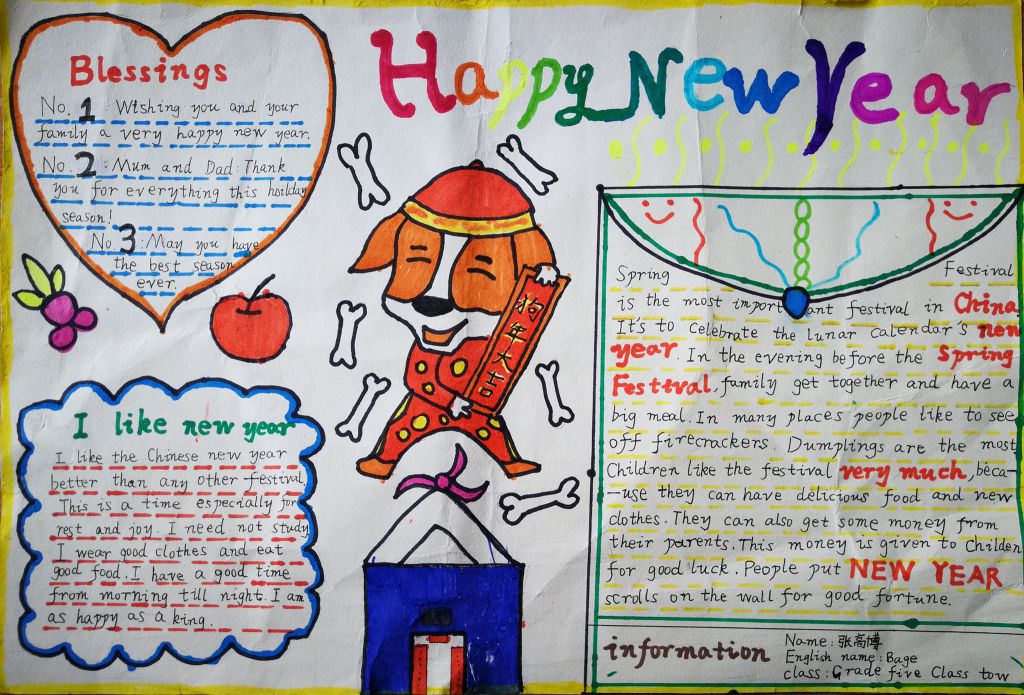 Happy New Year
Blessings
No. 1 : Wishing you and your
family a very happy new year.
No. 2 : Mum and Dad: Thank
you for everything this hoilday
season!
No 3 : May you have
the best season
ever.
狗年大吉
I like new year
I like the Chinese new year
better than any other festival,
This is a time especially for
rest and joy. I need not study
I wear good clothes and eat
good food. I have a good time
from morning till night. I am
as happy as a king.
Spring Festival
is the most important festival in China
It's to celebrate the lunar calendar's new
year. In the evening before the Spring
Festival, family get together and have a
big meal. In many places people like to see
off firecrackers. Dumplings are the most
Children like the festival very much, beca-
-use they can have delicious food and new
clothes. They can also get some money from
their parents. This money is given to Childen
for good luck. People put NEW YEAR
scrolls on the wall for good fortune.
information
Name: 张高博
English name: Bage
class: Grade five Class tow